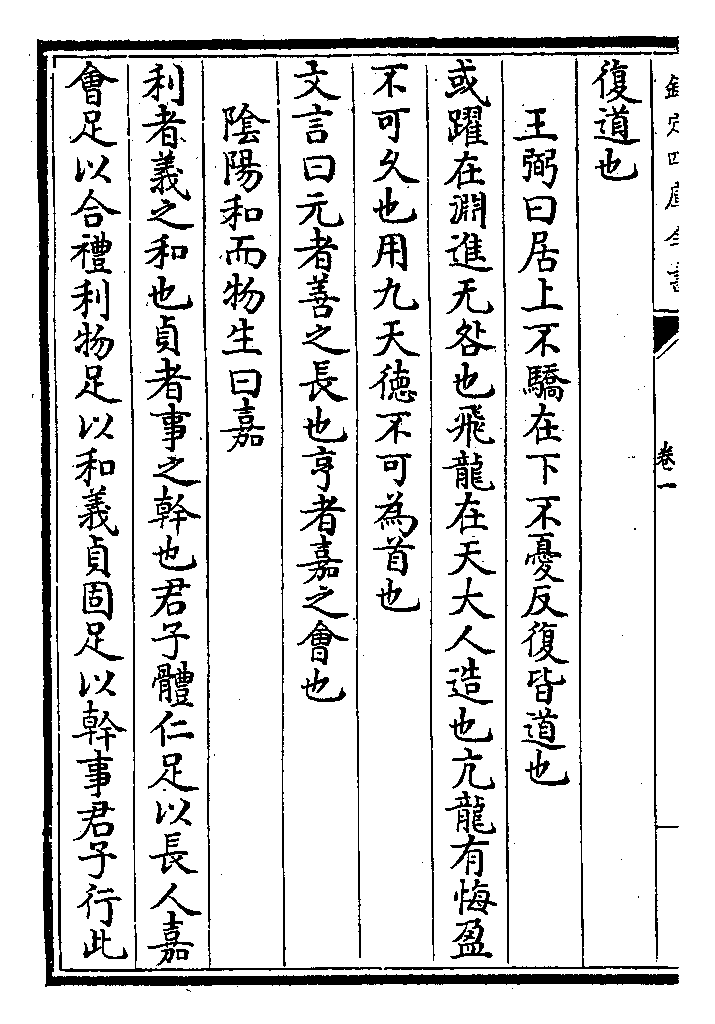 欽定四庫全書
卷一
復道也
王弼曰居上不驕在下不憂反復皆道也
或躍在淵進无咎也飛龍在天大人造也亢龍有悔盈
不可久也用九天徳不可為首也
文言曰元者善之長也亨者嘉之會也
陰陽和而物生曰嘉
利者義之和也貞者事之幹也君子體仁足以長人嘉
會足以合禮利物足以和義貞固足以幹事君子行此